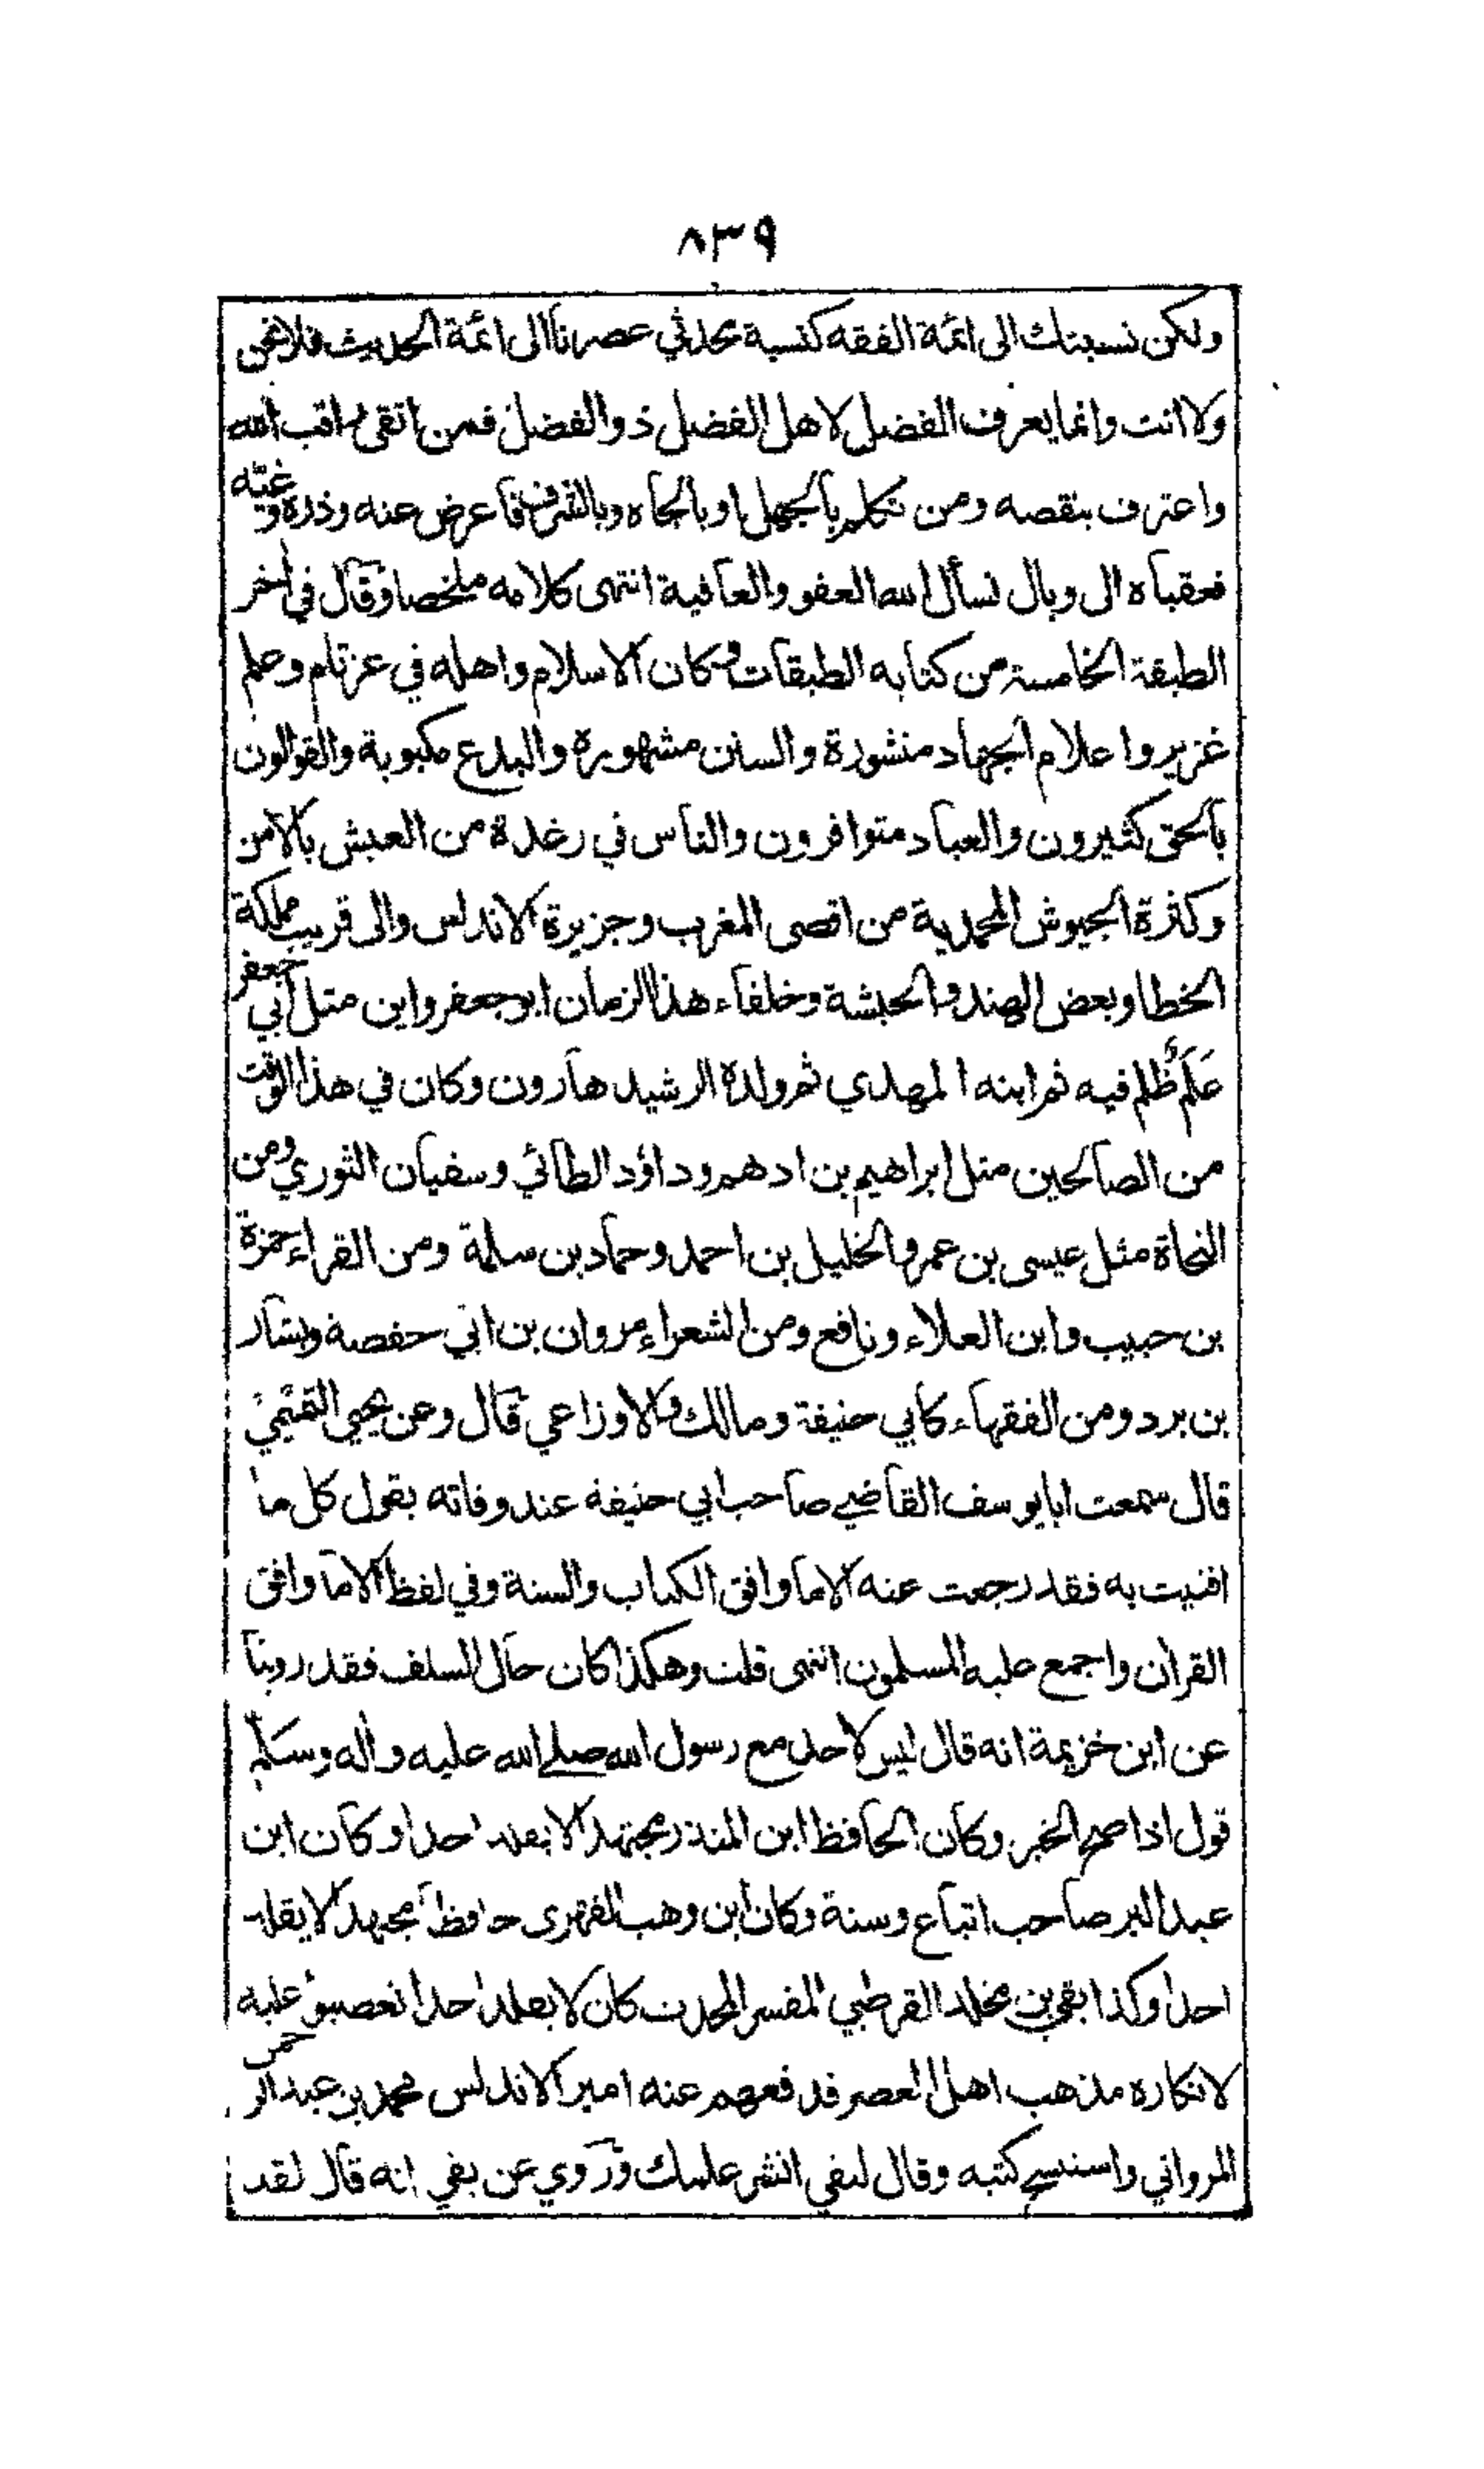 ٨٣٩
ولكن نسبتك الى ائمة الفقه كنسبة محدثي عصرنا الى ائمة الحديث فلا نحن
ولا انت وانما يعرف الفضل لاهل الفضل ذو الفضل فمن اتقى راقب الله
واعترف بنقصه ومن تكلم بالجهل او بالجاه وبالشرف فاعرض عنه وذره وغيّه
فعقباه الى وبال نسأل الله العفو والعافية انتهى كلامه ملخصا وقال في اٰخر
الطبقة الخامسة من كتابه الطبقات وكان الاسلام واهله في عز تام وعلم
غزير واعلام الجهاد منشورة والسنن مشهورة والبدع مكبوبة والقوالون
بالحق كثيرون والعباد متوافرون والناس في رغدة من العيش بالامن
وكثرة الجيوش المحمدية من اقصى المغرب وجزيرة الاندلس والى قريب مملكة
الخطا وبعض الهند والحبشة وخلفاء هذا الزمان ابو جعفر واين مثل أبي جعفر
عَلَم ظُلم فيه ثم ابنه المهدي ثم ولده الرشيد هارون وكان في هذا الوقت
من الصالحين مثل ابراهيم بن ادهم وداؤد الطائي وسفيان الثوري ومن
النحاة مثل عيسى بن عمر والخليل بن احمد وحماد بن سلمة ومن القراء حمزة
بن حبيب وابن العلاء ونافع ومن الشعراء مروان بن ابي حفصة وبشار
بن برد ومن الفقهاء كابي حنيفة ومالك والاوزاعي قال وعن يحيى
قال سمعت ابا يوسف القاضي صاحب ابي حنيفة عند وفاته يقول كل ما
افتيت به فقد رجعت عنه الا ما وافق الكتاب والسنة وفي لفظ الا ما وافق
القران واجمع عليه المسلمون انتهى قلت وهكذا كان حال السلف فقد روينا
عن ابن خزيمة انه قال ليس لاحد مع رسول الله صلى الله عليه واٰله وسلم
قول اذا صح الخبر وكان الحافظ ابن المنذر مجتهدا لا يقلد احدا وكان ابن
عبد البر صاحب اتباع وسنة وكان ابن وهب الفهري حافظا مجتهدا لا يقلد
احدا وكذا بقي بن مخلد القرطبي المفسر المحدث كان لا يقلد احدا تعصبوا عليه
لانكاره مذهب اهل العصر فدفعهم عنه امير الاندلس محمد بن عبد الرحمن
المرواني واستنسخ كتبه وقال لبقي انشر علمك وروي عن بقي انه قال لقد